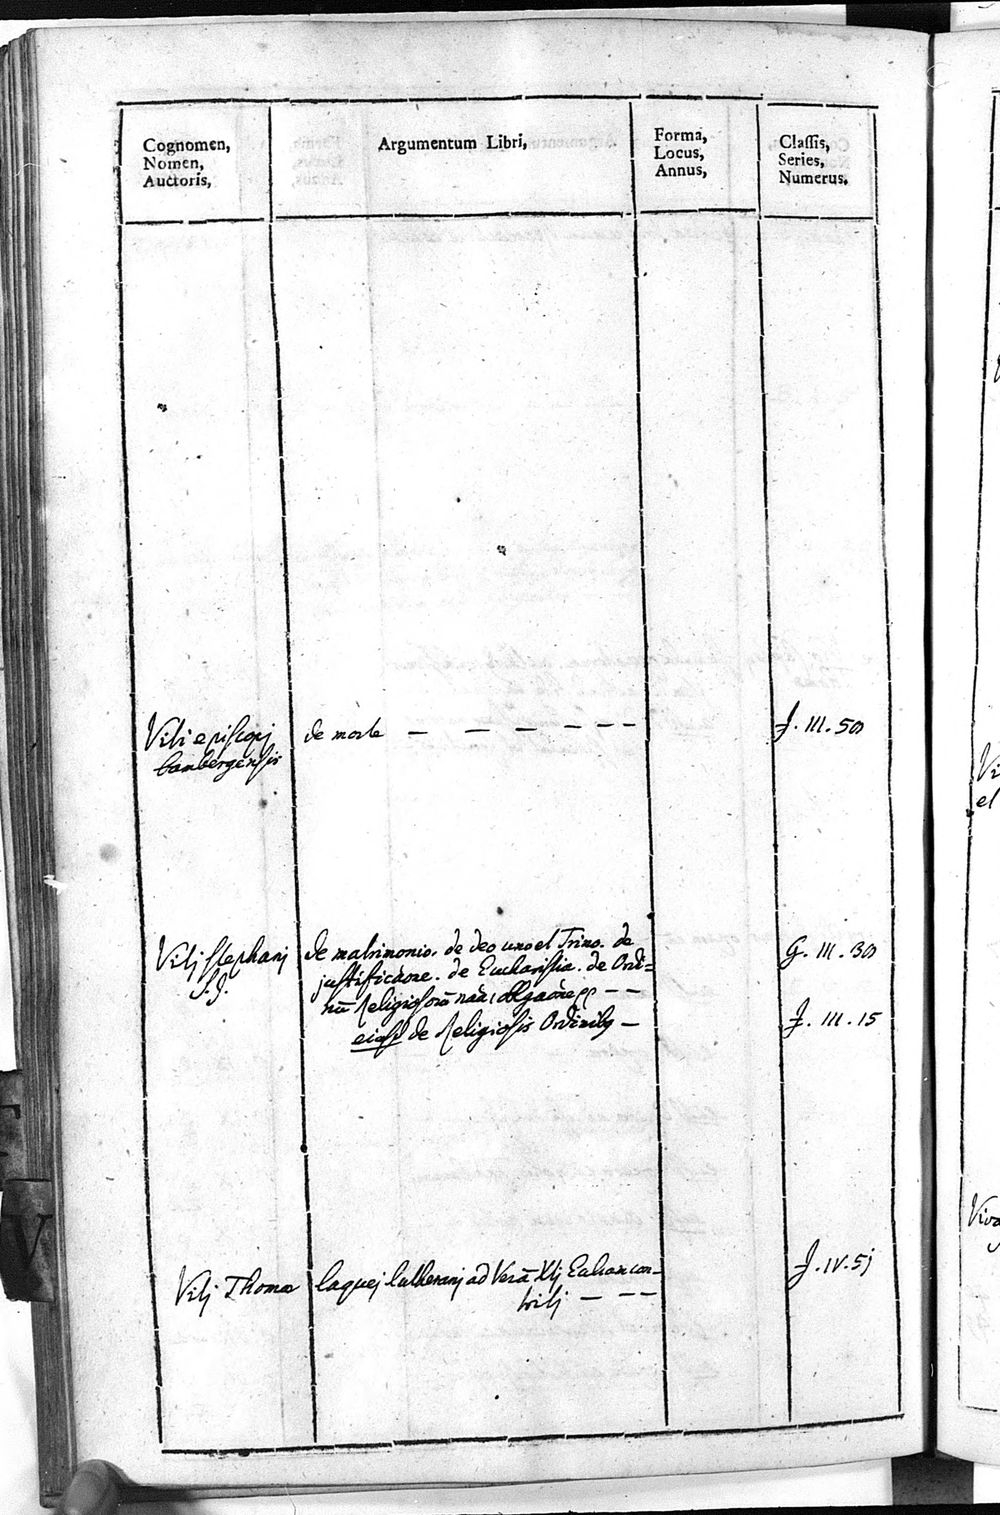 Cognomen,
Nomen,
Auctoris,
Argumentum Libri,
Forma,
Locus,
Annus,
Classis,
Series,
Numerus.
Viti episcopj
bambergensis
de morte — — — — — —
J. III. 50
Vitj stephanj
S.J.
de matrimonio. de deo uno et Trino. de
justificãone. de Eucharistia. de Ordi=
nũ Religiosorũ — —
G. III. 30
de Religiosis Ordinibɡ —
J. III. 15
Vitj Thomæ
laquej lutheranj ad Verã
— — —
J. IV. 51
Vi
el